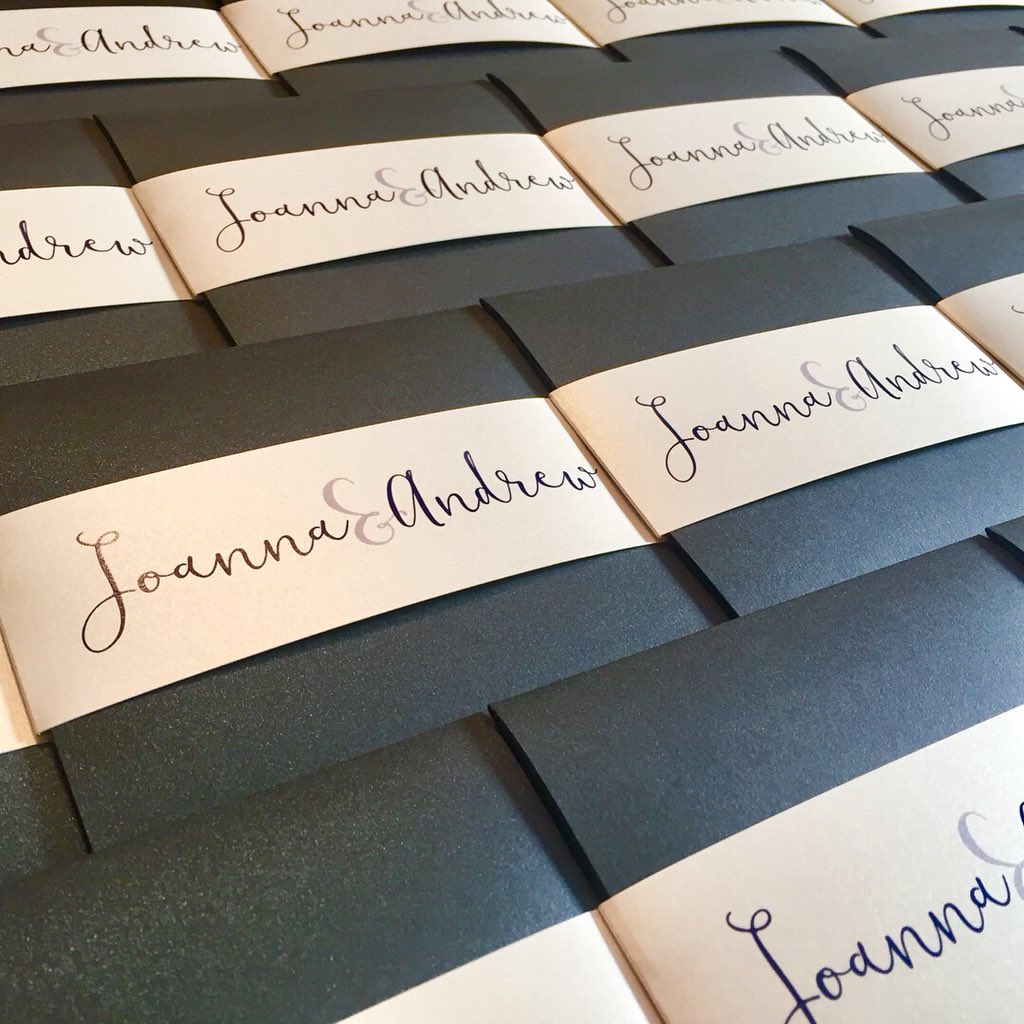 na & Andrew
Joanna & Andrew
Joanna
Joanna & Andrew
Joanna & Andrew
Joanna
ndrew
Joanna & Andrew
Joanna & Andrew
Joanna &